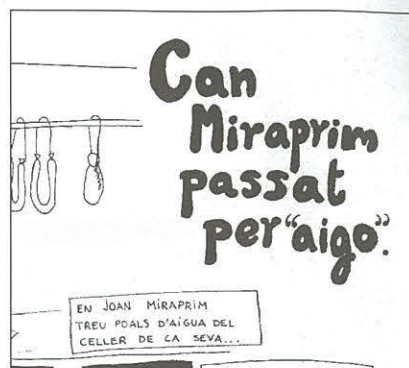 Can
Miraprim
passat
per "aigo".
EN JOAN MIRAPRIM
TREU POALS D'AIGUA DEL
CELLER DE CA SEVA...
...